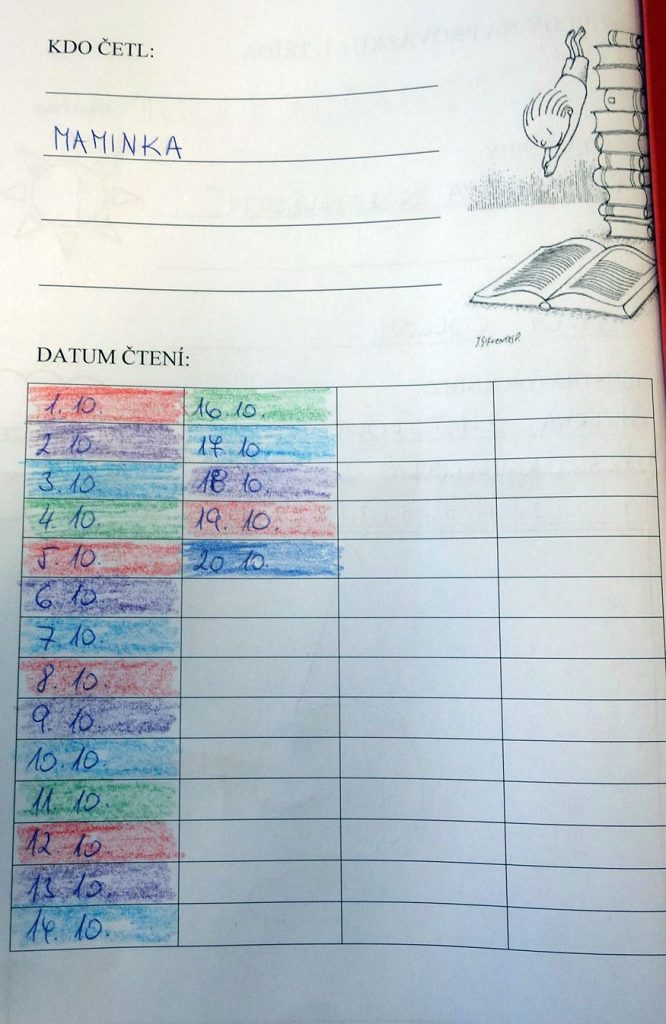 KDO ČETL:
MAMINKA
DATUM ČTENÍ:
1. 10. 16. 10.
2. 10 17. 10
3. 10 18. 10
4. 10. 19. 10.
5. 10. 20 10.
6 10
7. 10.
8. 10.
9. 10.
10. 10.
11. 10.
12 10
13 10.
14. 10.